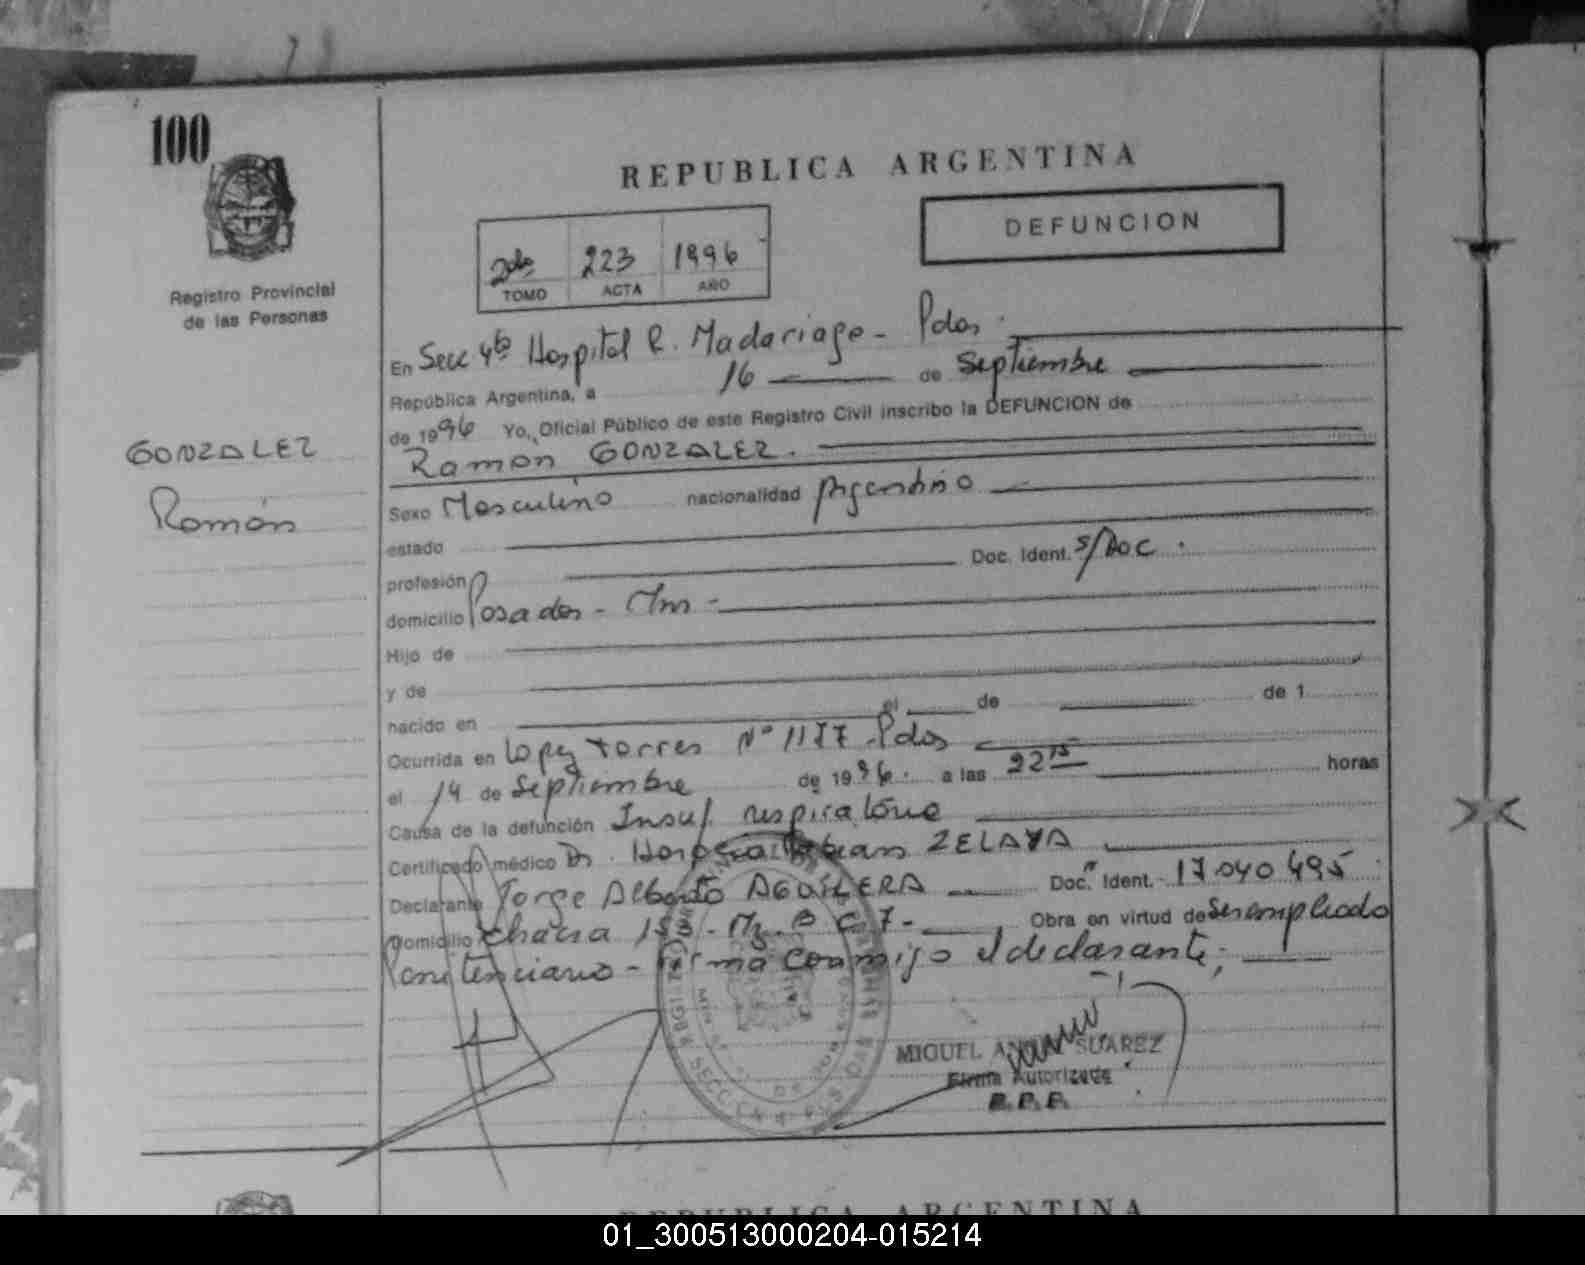 100
REPUBLICA ARGENTINA
DEFUNCION
2do 223 1996
TOMO ACTA AÑO
Registro Provincial
de las Personas
GONZALEZ
Ramón
En Secc 4ta Hospital R. Madariaga - Pdas.
República Argentina, a 16 de Septiembre
de 1996 Yo, Oficial Público de este Registro Civil inscribo la DEFUNCION de
Ramon GONZALEZ.
Sexo Masculino nacionalidad Argentino
estado
profesión Doc. Ident. S/Doc.
domicilio Posadas - Mns -
Hijo de
y de
nacido en el de de 1
Ocurrida en Lopez Torres Nº 1177 - Pdas
el 14 de Septiembre de 1996. a las 22 15 horas
Causa de la defunción Insuf. respiratoria
Certificado médico Dr. ZELAYA
Declarante Jorge Alberto AGUILERA Doc. Ident. 17.040.495
Domicilio chacra Mz. B C 7 - Obra en virtud de ser empleado
Penitenciario - Firma conmigo el declarante;
MIGUEL SUAREZ
Firma Autorizada
R.P.P.
REPUBLICA ARGENTINA
01_300513000204-015214